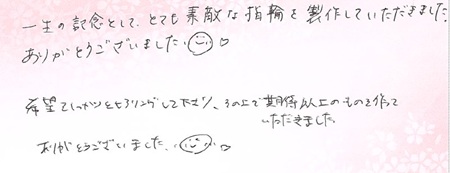 一生の記念として、とても素敵な指輪を製作していただきました。
ありがとうございました。
希望をしっかりとヒアリングして下さり、その上で期待以上のものを作って
いただきました。
ありがとうございました。